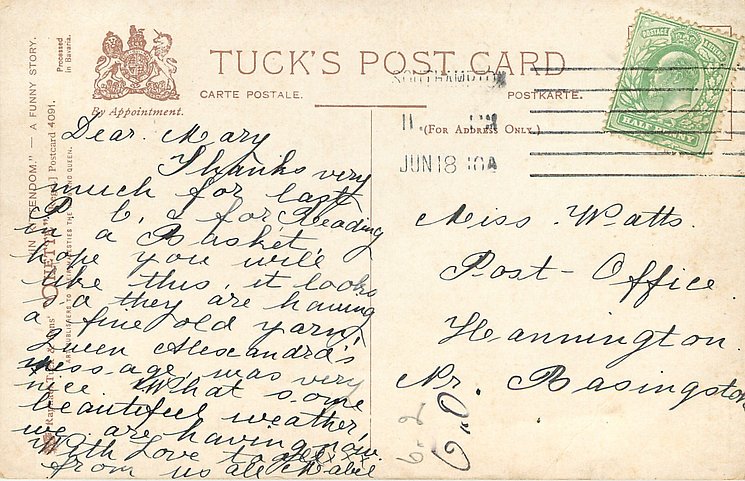 TUCK'S POST CARD
CARTE POSTALE.
POSTKARTE.
By Appointment.
(FOR ADDRESS ONLY.)
JUN 18 10 A
HALFPENNY
POSTAGE
Processed
in Bavaria.
KITTENDOM." — A FUNNY STORY.
Postcard 4091.
Dear Mary
Thanks very
much for last
P. C, s for Reading
in a Basket,
hope you will
like this, it looks
as they are having
a fine old yarn,
Queen Alexandra's
message, was very
nice. What some
beautiful weather,
we are having now.
With Love to all xxx
from us all Mabel
Miss. Watts.
Post-Office.
Hannington.
Nr. Basingstoke
6.2